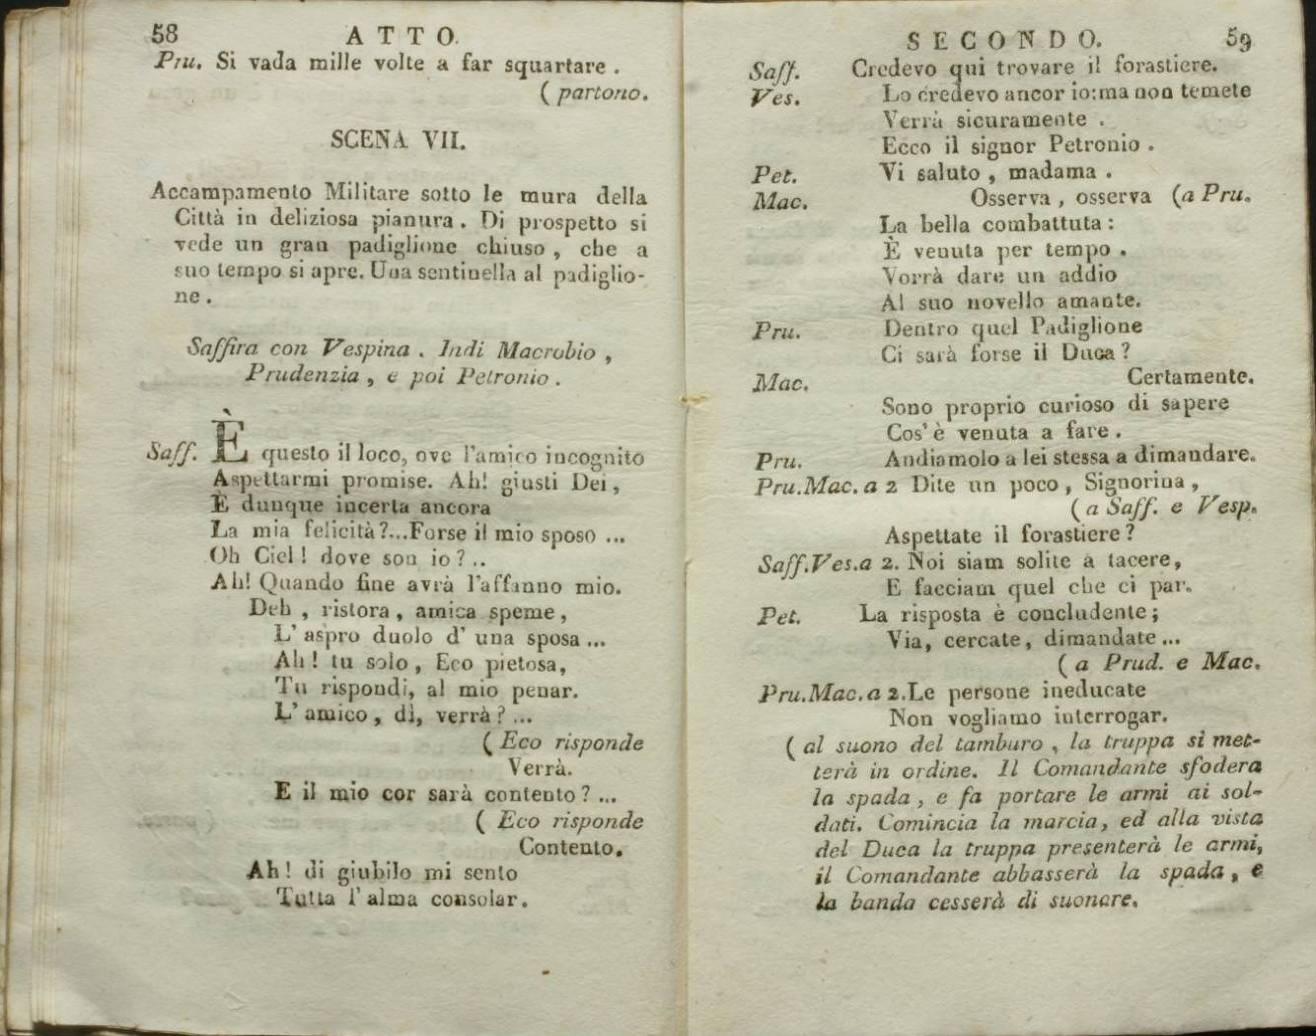 58 ATTO.
Pru. Si vada mille volte a far squartare .
( partono.
SCENA VII.
Accampamento Militare sotto le mura della
Città in deliziosa pianura . Di prospetto si
vede un gran padiglione chiuso , che a
suo tempo si apre. Una sentinella al padiglio-
ne .
Saffira con Vespina . Indi Macrobio ,
Prudenzia , e poi Petronio .
Saff. È questo il loco, ove l'amico incognito
Aspettarmi promise. Ah! giusti Dei ,
È dunque incerta ancora
La mia felicità ?...Forse il mio sposo ...
Oh Ciel ! dove son io ? ..
Ah! Quando fine avrà l'affanno mio.
Deh , ristora , amica speme ,
L' aspro duolo d' una sposa ...
Ah ! tu solo , Eco pietosa,
Tu rispondi, al mio penar.
L' amico , dì, verrà ? ...
( Eco risponde
Verrà.
E il mio cor sarà contento ? ...
( Eco risponde
Contento.
Ah ! di giubilo mi sento
Tutta l' alma consolar .
SECONDO. 59
Saff. Credevo qui trovare il forastiere.
Ves. Lo credevo ancor io: ma non temete
Verrà sicuramente .
Ecco il signor Petronio .
Pet. Vi saluto , madama .
Mac. Osserva , osserva (a Pru.
La bella combattuta :
È venuta per tempo .
Vorrà dare un addio
Al suo novello amante.
Pru. Dentro quel Padiglione
Ci sarà forse il Duca ?
Mac. Certamente.
Sono proprio curioso di sapere
Cos' è venuta a fare .
Pru. Andiamolo a lei stessa a dimandare.
Pru.Mac. a 2 Dite un poco , Signorina ,
( a Saff. e Vesp.
Aspettate il forastiere ?
Saff.Ves.a 2. Noi siam solite a tacere,
E facciam quel che ci par.
Pet. La risposta è concludente ;
Via, cercate, dimandate ...
( a Prud. e Mac.
Pru.Mac. a 2.Le persone ineducate
Non vogliamo interrogar.
( al suono del tamburo , la truppa si met-
terà in ordine. Il Comandante sfodera
la spada , e fa portare le armi ai sol-
dati. Comincia la marcia, ed alla vista
del Duca la truppa presenterà le armi,
il Comandante abbasserà la spada , e
la banda cesserà di suonare.